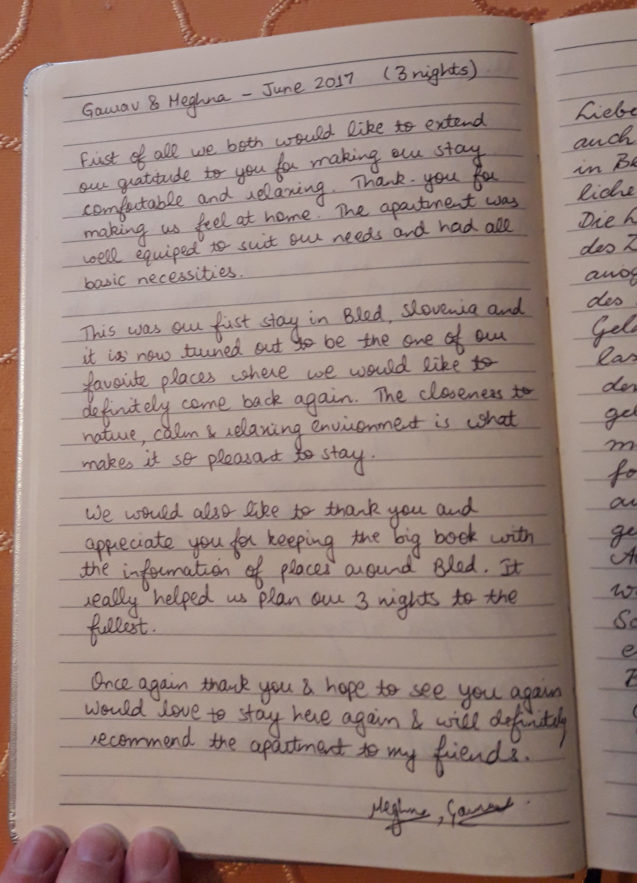 Gaurav & Meghna - June 2017 (3 nights)
First of all we both would like to extend
our gratitude to you for making our stay
comfortable and relaxing. Thank-you for
making us feel at home. The apartment was
well equiped to suit our needs and had all
basic necessities.
This was our first stay in Bled, Slovenia and
it is now turned out to be the one of our
favorite places where we would like to
definitely come back again. The closeness to
nature, calm & relaxing environment is what
makes it so pleasant to stay.
We would also like to thank you and
appreciate you for keeping the big book with
the information of places around Bled. It
really helped us plan our 3 nights to the
fullest.
Once again thank you & hope to see you again
would love to stay here again & will definitely
recommend the apartment to my friends.
Meghna, Gaurav
Liebe
auch
in Be
liche
Die h
des Z
des
Gel
las
den
ge
m
fo
au
ge
w
So
e